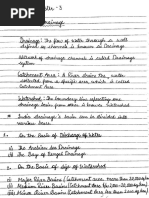 - 3
Drainage
Drainage: The flow of water through is well
defined as channels is known as Drainage
Network of drainage channels is called Drainage
system
Catchment Area: A River drains the water
collected from a specific area, which is called
Catchment area.
Watershed: The boundary line separating one
drainage basin from other is known as watershed
* India drainage's basin can be divided into
1. On the Basis of Discharge of Water
① The Arabian Sea Drainage
② The Bay of Bengal Drainage
2. On the Basis of size of Watershed
① Major River Basins (Catchment Area
② Medium River Basins
③ Minor River Basins